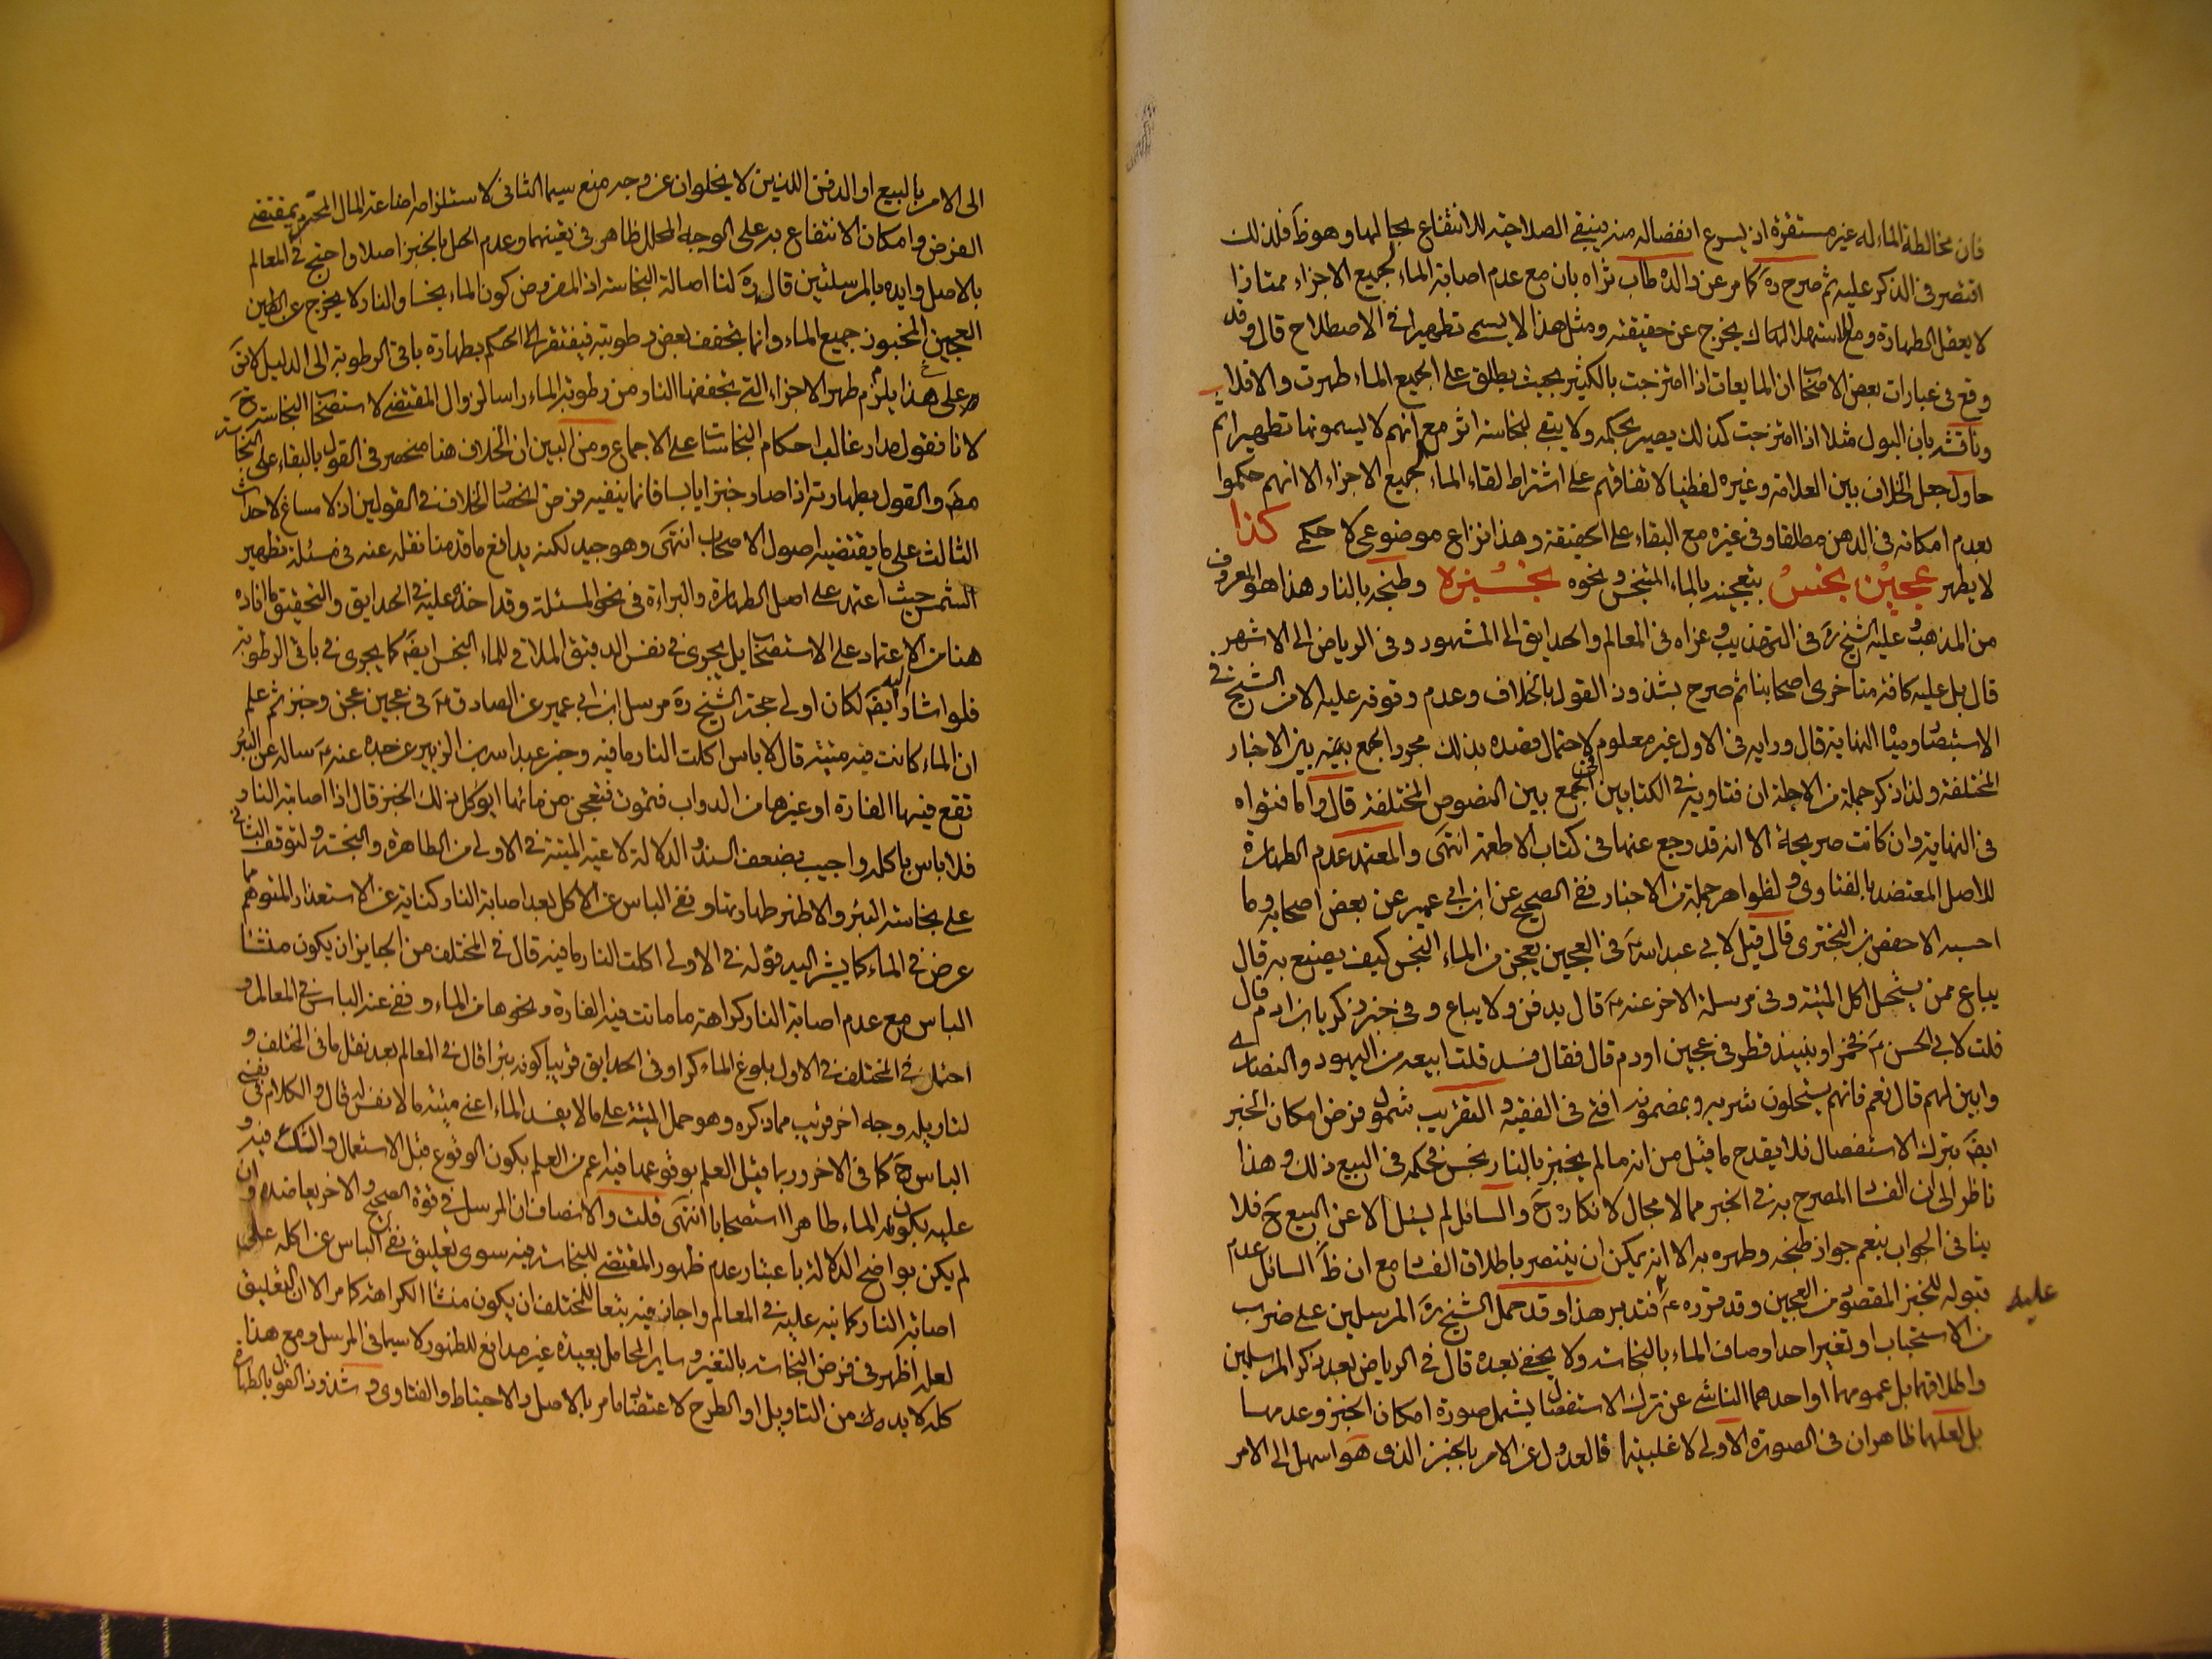 فان مخالطة الماء له غير مستقرة اذ يسرع انفصاله منه فيبقى الصلاحية للانتفاع بحالها وهو ظ فلذلك
اقتصر في الذكر عليه ثم صرح ره كما مر عن والده طاب ثراه بان مع عدم اصابة الماء لجميع الاجزاء ممتازا
لا يعقل الطهارة ومع استهلاكه يخرج عن حقيقته ومثل هذا لا يسمى تطهيرا في الاصطلاح قال وقد
وقع في عبارات بعض الاصحاب ان المايعات اذا امتزجت بالكثير بحيث يطلق على الجميع الماء طهرت والا فلا
وناقشه بان البول مثلا اذا امتزجت كذلك يصير بحكمه ولا يبقى لنجاسته اثر مع انهم لا يسمونها تطهيرا ثم
حاول جعل الخلاف بين العلامة وغيره لفظيا لاتفاقهم على اشتراط لقاء الماء لجميع الاجزاء الا انهم حكموا
بعدم امكانه في الدهن مطلقا وفي غيره مع البقاء على الحقيقة وهذا نزاع موضوعي لا حكمي كذا
لا يطهر عجين نجس بتعجينه بالماء المتنجس ونحوه بخبزه وطبخه بالنار هذا هو المعروف
من المذهب وعليه الشيخ ره في التهذيب وعزاه في المعالم والحدايق الى المشهور وفي الرياض الى الاشهر
قال بل عليه كافة متاخري اصحابنا ثم صرح بشذوذ القول بالخلاف وعدم وقوفه عليه الا من الشيخ في
الاستبصار ومياه النهاية قال ورايه في الاول غير معلوم لاحتمال قصده بذلك مجرد الجمع بينه بين الاخبار
المختلفة ولذا ذكر جملة من الاجلة ان فتاويه في الكتابين في الجمع بين النصوص المختلفة قال واما فتواه
في النهاية وان كانت صريحة الا انه قد رجع عنها في كتاب الاطعمة انتهى والمعتمد عدم الطهارة
للاصل المعتضد بالفتاوى ولظواهر جملة من الاخبار ففي الصحيح عن ابن ابي عمير عن بعض اصحابه وما
احسبه الا حفص بن البختري قال قيل لابي عبد الله ع في العجين يعجن من الماء النجس كيف يصنع به قال
يباع ممن يستحل اكل الميتة وفي مرسلة الاخر عنه ع قال يدفن ولا يباع وفي خبر زكريا بن ادم قال
قلت لابي الحسن ع فخمر او نبيذ قطر في عجين او دم قال فقال فسد قلت ابيعه من اليهود والنصارى
وابين لهم قال نعم فانهم يستحلون شربه وبمضمونه افتى في الفقيه والتقريب شمول فرض امكان الخبز
ايضا بترك الاستفصال فلا يقدح ما قيل من انه ما لم يخبز بالنار نجس فحكمه في البيع ذلك وهذا
ناظر الى ان الفسا المصرح به في الخبر مما لا مجال لانكاره ح والسائل لم يسئل الا عن البيع ح فلا
ينافي الجواب بنعم جواز طبخه وطهره به الا انه يمكن ان ينتصر باطلاق الفسا مع ان ظ السائل عدم
قبوله للخبز المقصود من العجين وقد قرره ع فتدبر هذا وقد حمل الشيخ ره المرسلين على ضرب
عليه
من الاستحباب او تغير احد اوصاف الماء بالنجاسة ولا يخفى بعده قال في الرياض بعد ذكر المرسلين
واطلاقهما بل عمومهما او احدهما الناشي عن ترك الاستفصال يشمل صورة امكان الخبز وعدمها
بل لعلهما ظاهران في الصورة الاولى لاغلبيتها فالعدول عن الامر بالخبز الذي هو اسهل الى الامر
الى الامر بالبيع او الدفن اللذين لا يخلوان عن وجه منع سيما الثاني لاستلزامه اضاعة المال المحترم بمقتضى
الفرض وامكان الانتفاع به على الوجه المحلل ظاهر في تعينهما وعدم الحل بالخبز اصلا واحتج في المعالم
بالاصل وايده بالمرسلتين قال ره لنا اصالة النجاسة اذ المفروض كون الماء نجسا والنار لا يخرج عن الطين
العجين المخبوز جميع الماء وانما يخفف بعض رطوبته فيفتقر في الحكم بطهارة باقي الرطوبة الى الدليل لا يق
وعلى هذا يلزم طهر الاجزاء التي يجففها النار من رطوبة الماء راسا لزوال المقتضى لاستصحاب النجاسة ح
لانا نقول مدار غالب احكام النجاسات على الاجماع ومن البين ان الخلاف هنا منحصر في القول بالبقاء على النجاسة
مط والقول بطهارته اذا صار خبزا يابسا فانما ينفيه فرض انحصار الخلاف في القولين اذ لا مساغ لاحداث
الثالث على ما يقتضيه اصول الاصحاب انتهى وهو جيد لكنه يدافع ما قدمنا نقله عنه في مسئلة تطهير
الشمس حيث اعتمد على اصل الطهارة والبراءة في نحو المسئلة وقد اخذه عليه في الحدايق والتحقيق ما افاده
هنا من الاعتماد على الاستصحاب بل يجري في نفس الدقيق الملاقي للماء النجس ايضا كما يجري في باقي الرطوبة
فلو اشار اليه ايضا لكان اولى حجة الشيخ ره مرسل ابن ابي عمير عن الصادق ع في عجين عجن وخبز ثم علم
ان الماء كانت فيه ميتة قال لا باس اكلت النار ما فيه وخبر عبد الله بن الزبير عن جده عنه ع ساله عن البئر
تقع فيها الفارة او غيرها من الدواب فتموت فتعجن من مائها ايوكل ذلك الخبز قال اذا اصابته النار
فلا باس باكله واجيب بضعف السند والدلالة لاعمية الميتة في الاولى من الطاهرة والنجسة ولتوقف الثاني
على نجاسة البئر والاظهر طهارتها ونفي الباس عن الاكل بعد اصابة النار كناية عن الاستعذار المتوهم مما
عرض في الماء كما يشير اليه قوله في الاولى اكلت النار ما فيه قال في المختلف من الجايز ان يكون منشأ
الباس مع عدم اصابة النار كراهة ما ماتت فيه الفارة ونحوها من الماء ونفى عنه الباس في المعالم و
احتمل في المختلف في الاول بلوغ الماء كرا وفي الحدايق قريبا كونه بئرا قال في المعالم بعد نقل ما في المختلف و
لتاويله وجه اخر قريب مما ذكره وهو حمل الميتة على ما لا يفسد الماء اعني ميتة ما لا نفس له قال والكلام في نفي
الباس ح كما في الاخر وربما قيل العلم بوقوعها فيه اعم من العلم بكون الوقوع قبل الاستعمال والشك فيه و
عليه يكون الماء طاهرا استصحابا انتهى قلت والانصاف ان المرسل في قوة الصحيح والاخر يعاضده وان
لم يكن بواضح الدلالة باعتبار عدم ظهور المقتضى للنجاسة فيه سوى تعليق نفي الباس عن اكله على
اصابة النار كما نبه عليه في المعالم واجاز فيه تبعا للمختلف ان يكون منشا الكراهة كما مر الا ان التعليق
لعله اظهر في فرض النجاسة بالتغير وساير المحامل بعيدة غير مدافع للظهور لا سيما في المرسل ومع هذا
كله لا بد من التاويل او الطرح لاعتضاد ما مر بالاصل والاحتياط والفتاوى وشذوذ القول بالطهارة